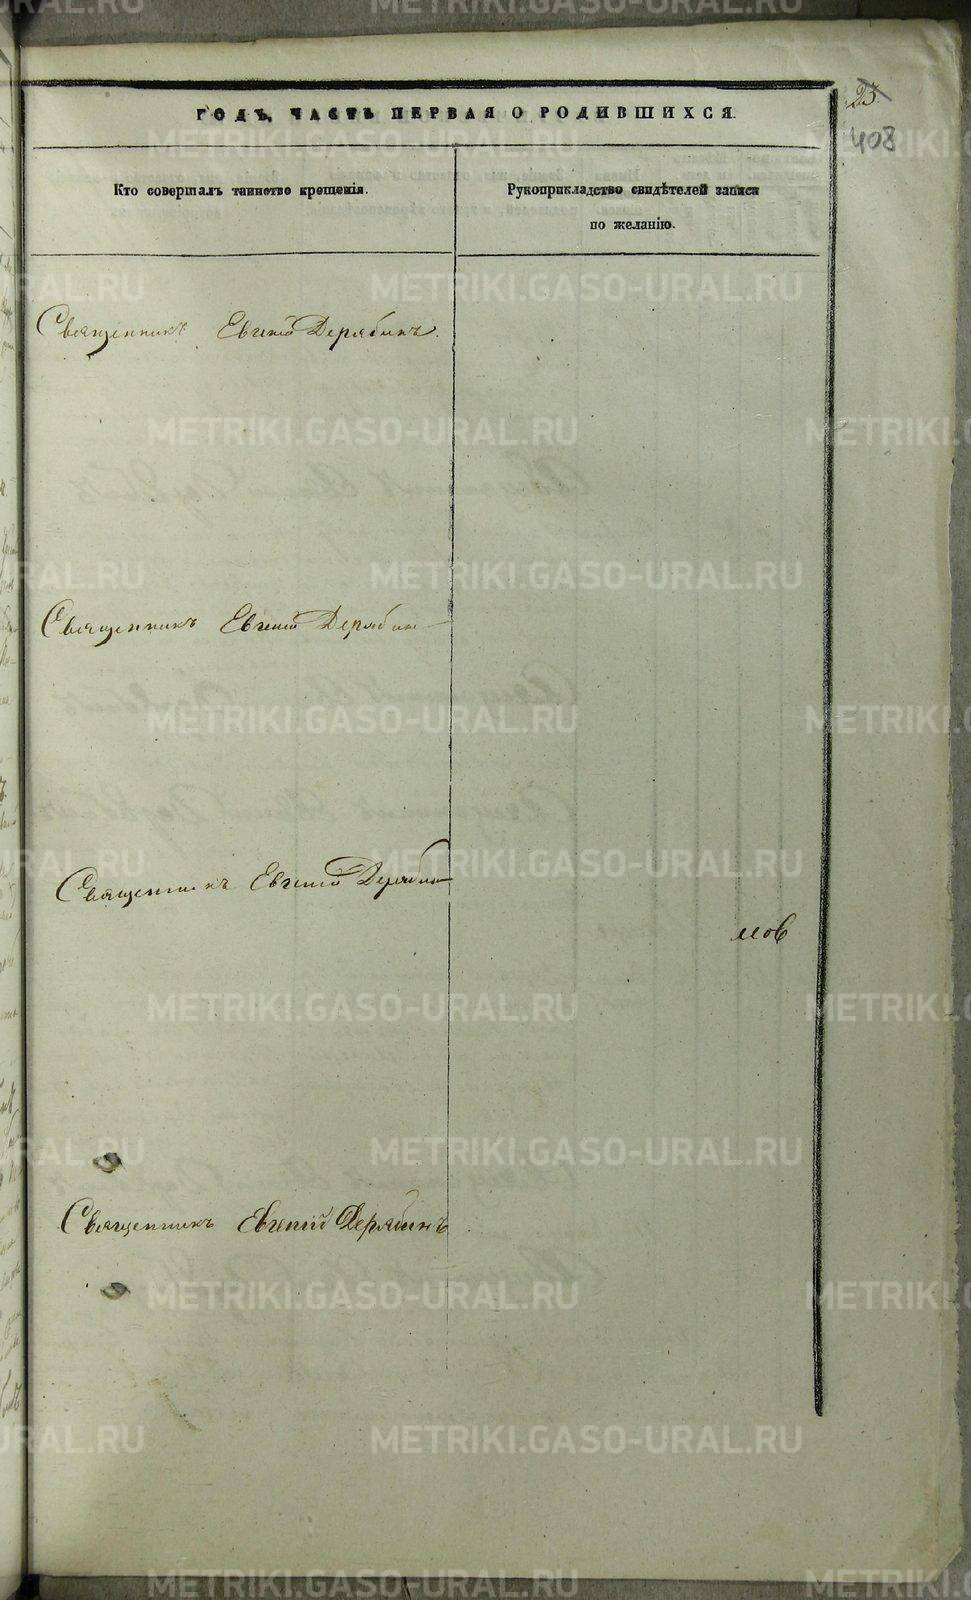 25
408
ГОДЪ, ЧАСТЬ ПЕРВАЯ О РОДИВШИХСЯ.
Кто совершалъ таинство крещенія.
Рукоприкладство свидѣтелей записи
по желанію.
Священникъ Евгеній Дерябинъ.
Священникъ Евгеній Дерябин
Священникъ Евгеній Дерябин
мов
Священникъ Евгеній Дерябинъ
METRIKI.GASO-URAL.RU